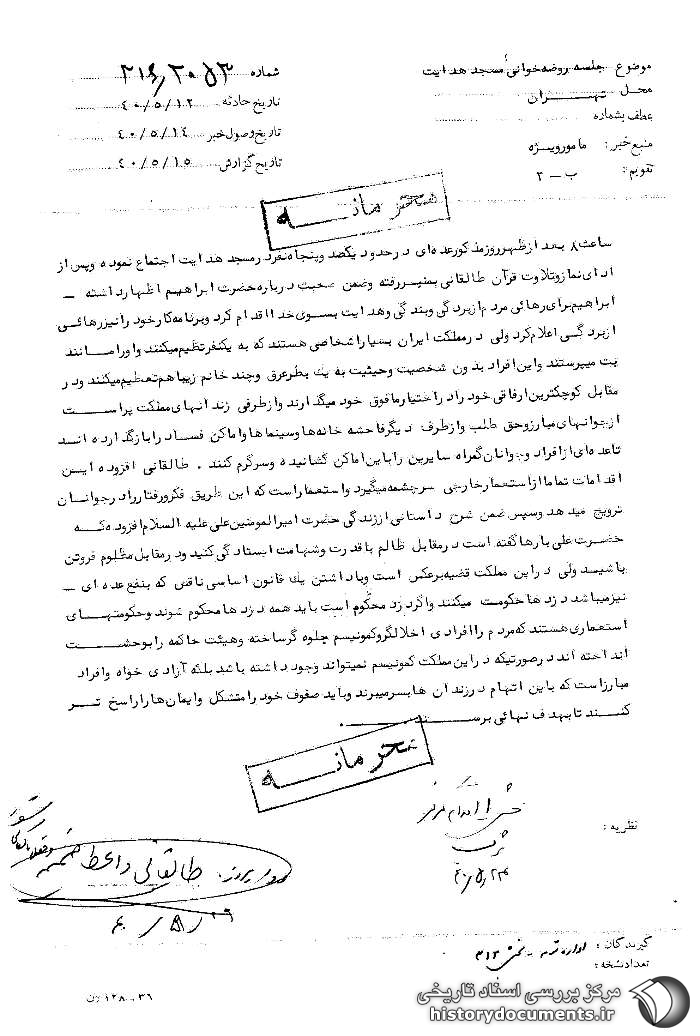 موضوع جلسه روضه‌خوانی مسجد هدایت
محل تهــران
عطف بشماره
منبع خبر: مامورویژه
تقویم: ب - ۲
شماره
تاریخ حادثه ۴۰/۵/۱۲
تاریخ وصول خبر ۴۰/۵/۱۴
تاریخ گزارش ۴۰/۵/۱۵
محرمانــه
ساعت ۸ بعد ازظهر روز مذکور عده‌ای در حدود یکصد وپنجاه نفر در مسجد هدایت اجتماع نموده وپس از
ادای نماز وتلاوت قرآن طالقانی بمنبر رفته وضمن صحبت درباره حضرت ابراهیم اظهار داشته -
ابراهیم برای رهائی مردم از بردگی وبندگی وهدایت بسوی خدا اقدام کرد وبرنامه کار خود را نیز رهائی
از بردگی اعلام کرد ولی در مملکت ایران بسیار اشخاصی هستند که به یکنفر تعظیم میکنند واورا مانند
بت میپرستند واین افراد بدون شخصیت وحیثیت به یك بطر عرق وچند خانم زیبا هم تعظیم میکنند ودر
مقابل کوچکترین ارفاقی خود را در اختیار مافوق خود میگذارند واز طرفی زندانهای مملکت پر است
از جوانهای مبارز وحق طلب واز طرف دیگر فاحشه خانه‌ها وسینماها واماکن فساد را باز گذارده انـد
تا عده‌ای از افراد وجوانان گمراه سایرین را باین اماکن کشانیده وسرگرم کنند . طالقانی افزوده ایـن
اقدامات تماما از استعمار خارجی سرچشمه میگیرد واستعمار است که این طریق فکر ورفتار را در جوانـان
ترویج میدهد وسپس ضمن شرح داستانی از زندگی حضرت امیرالمومنین علی علیه السلام افزوده که
حضرت علی بارها گفته است در مقابل ظالم با قدرت وشهامت ایستادگی کنید ودر مقابل مظلوم فروتن
باشید ولی در این مملکت قضیه برعکس است وبا داشتن یك قانون اساسی ناقص که بنفع عده ای -
نیز میباشد دزدها حکومت میکنند واگر دزد محکوم است باید همه دزدها محکوم شوند وحکومتهـای
استعماری هستند که مردم را افرادی اخلالگر وکمونیسم جلوه گر ساخته وهیئت حاکمه را بوحشـت
انداخته اند در صورتیکه در این مملکت کمونیسم نمیتواند وجود داشته باشد بلکه آزادی خواه وافراد
مبارز است که باین اتهام در زندان ها بسر میبرند وباید صفوف خود را متشکل وایمان ها را راسخ تـر
کننـد تا بهدف نهائی برسنـــد .
محرمانــه
نظریه :
طالقانی واعظ
گیرندگان :
تعداد نسخه :
مرکز بررسی اسناد تاریخی
historydocuments.ir